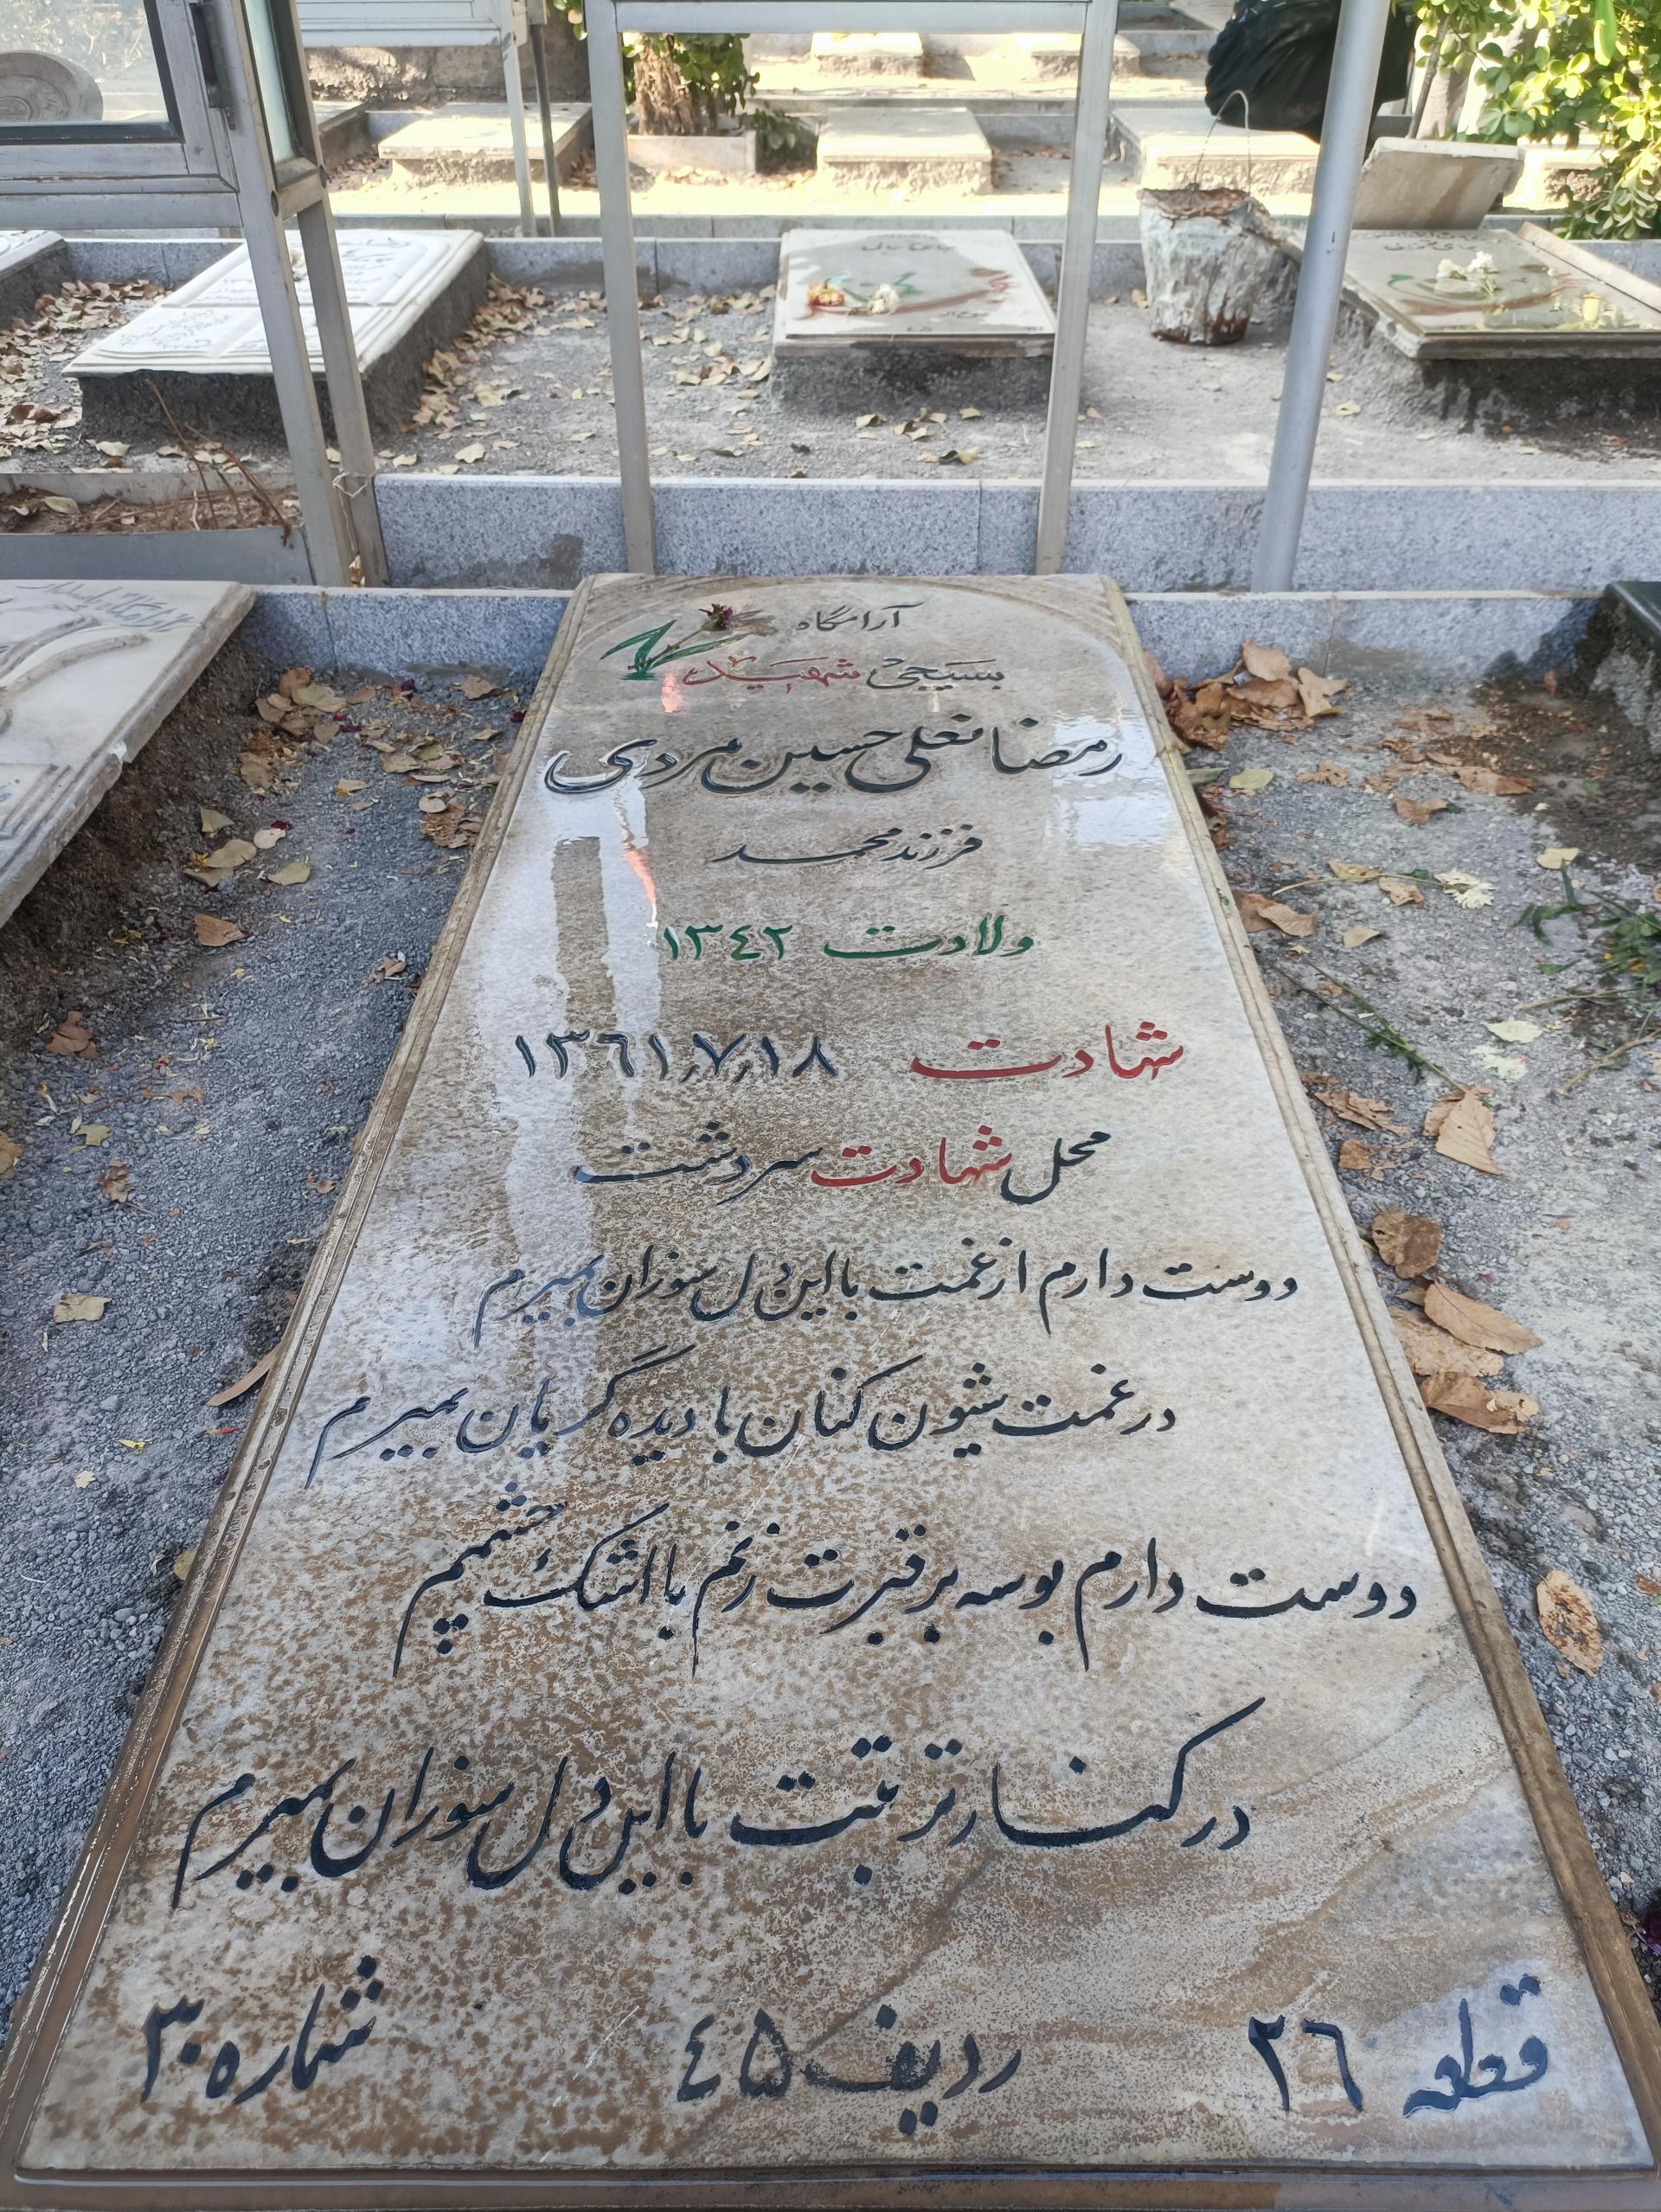 آرامگاه
بسیجی شهید
رمضانعلی حسین مردی
فرزند محمد
ولادت ۱۳٤۲
شهادت ۱۳٦۱٫۷٫۱۸
محل شهادت سردشت
دوست دارم از غمت با این دل سوزان بمیرم
در غمت شیون کنان با دیده گریان بمیرم
دوست دارم بوسه بر قبرت زنم با اشک چشمم
در کنار تربتت با این دل سوزان بمیرم
قطعه ۲٦ ردیف ٤۵ شماره ۳۰